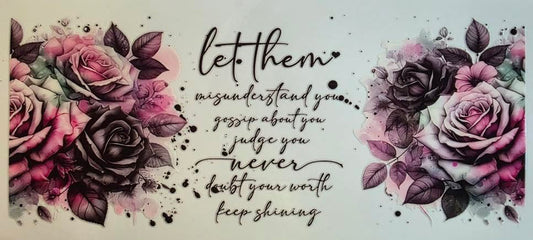 let them
misunderstand you
gossip about you
judge you
never
doubt your worth
keep shining